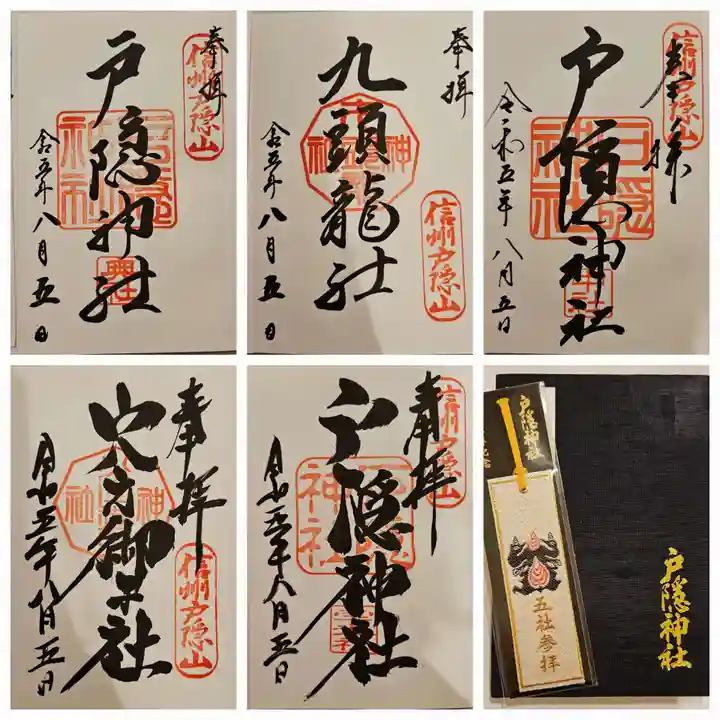 奉拝
信州戸隠山
戸隠神社
令和五年八月五日
奉拝
九頭龍社
信州戸隠山
令和五年八月五日
奉拝
信州戸隠山
戸隠神社
令和五年八月五日
奉拝
火之御子社
信州戸隠山
令和五年八月五日
奉拝
信州戸隠山
戸隠神社
令和五年八月五日
戸隠神社
五社参拝
戸隠神社